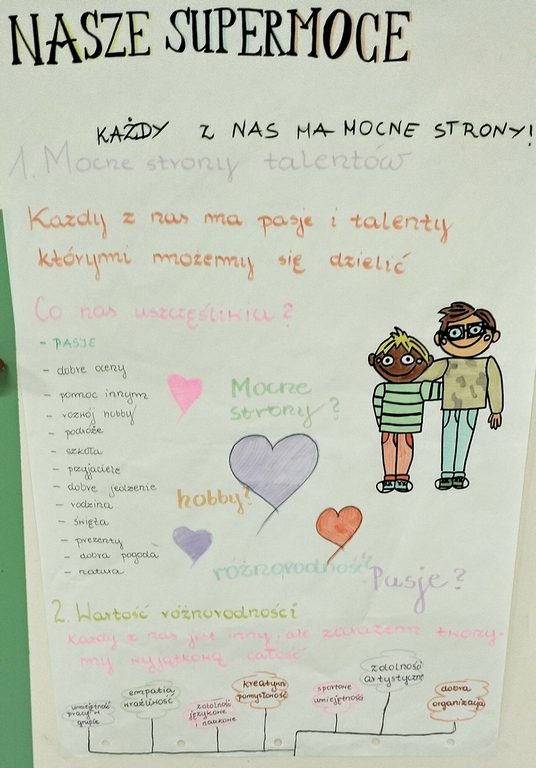 NASZE SUPERMOCE
KAŻDY Z NAS MA MOCNE STRONY!
1. Mocne strony talentów
Każdy z nas ma pasje i talenty
którymi możemy się dzielić
Co nas uszczęśliwia?
- PASJE
- dobre oceny
- pomoc innym
- rozwój hobby
- podróże
- szkoła
- przyjaciele
- dobre jedzenie
- rodzina
- święta
- prezenty
- dobra pogoda
- natura
Mocne
strony?
hobby?
różnorodność?
Pasje?
2. Wartość różnorodności
Każdy z nas jest inny, ale zarazem tworzy-
my wyjątkową całość
umiejętność
pracy w
grupie
empatia
wrażliwość
zdolność
językowe
i naukowe
kreatywn
pomysłowość
sportowe
umiejętności
zdolność
artystyczne
dobra
organizacja